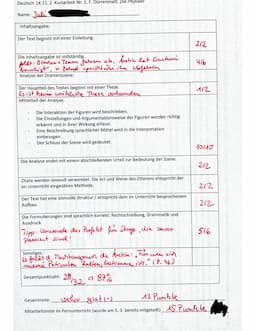 Deutsch 1K 11. 2. Kursarbeit Nr. 1, F. Dürrenmatt, Die Physiker
Name: Juli
Inhaltsangabe.
Der Text beginnt mit einer Einleitung.
2/2
Die Inhaltsangabe ist vollständig.
4/6
Analyse der Dramenszene:
Der Hauptteil des Textes beginnt mit einer These.
Es ist keine wirkliche These vorhanden
1/2
Mittelteil der Analyse.
- Die Interaktion der Figuren wird beschrieben.
- Die Einstellungen und Argumentationsweise der Figuren werden richtig
erkannt und in ihrer Wirkung erfasst.
- Eine Beschreibung sprachlicher Mittel wird in die Interpretation
einbezogen.
- Der Schluss der Szene wird gedeutet.
10/10
Die Analyse endet mit einem abschließenden Urteil zur Bedeutung der Szene.
2/2
Zitate werden sinnvoll verwendet. Die Art und Weise des Zitierens entspricht der
im Unterricht eingeübten Methode.
2/2
Der Text hat eine sinnvolle Struktur / entspricht dem im Unterricht besprochenen
Aufbau.
2/2
Die Formulierungen sind sprachlich korrekt: Rechtschreibung, Grammatik und
Ausdruck
Tipp: Verwende das Perfekt für Dinge, die zuvor
passiert sind!
5/6
Sonstiges:
Gesamtpunktzahl: 28/32 = 87%
Gesamtnote: sehr gut (-) 13 Punkte
Mitarbeitsnote im Fernunterricht (wurde am 5. 3. bereits mitgeteilt) 15 Punkte